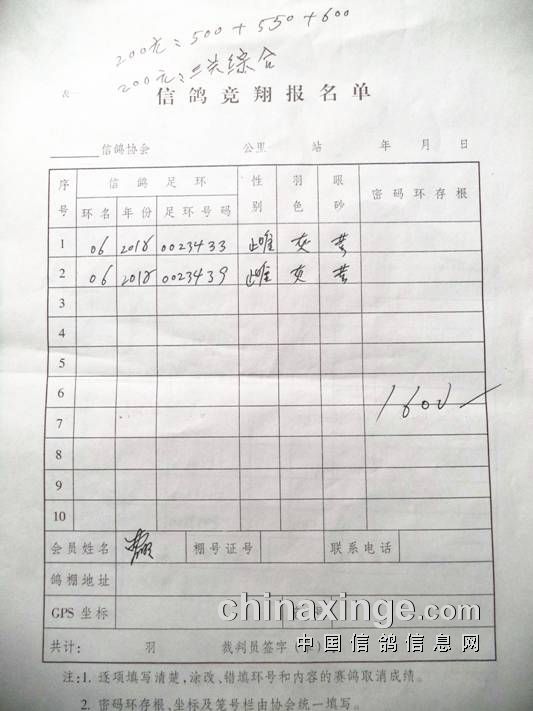 200元：500+550+600
200元：三关综合
信鸽竞翔报名单
信鸽协会 公里 站 年 月 日
序号 信鸽足环 性别 羽色 眼砂 密码环存根
环名 年份 足环号码
1 06 2018 0023433 雌 灰 黄
2 06 2018 0023439 雌 灰 黄
3
4
5
6
1600
7
8
9
10
会员姓名 棚号证号 联系电话
鸽棚地址
GPS坐标
chinaxinge.com
共计: 羽 裁判员签字
中国信鸽信息网
注:1. 逐项填写清楚,涂改、错填环号和内容的赛鸽取消成绩。
2. 密码环存根、坐标及笼号栏由协会统一填写。